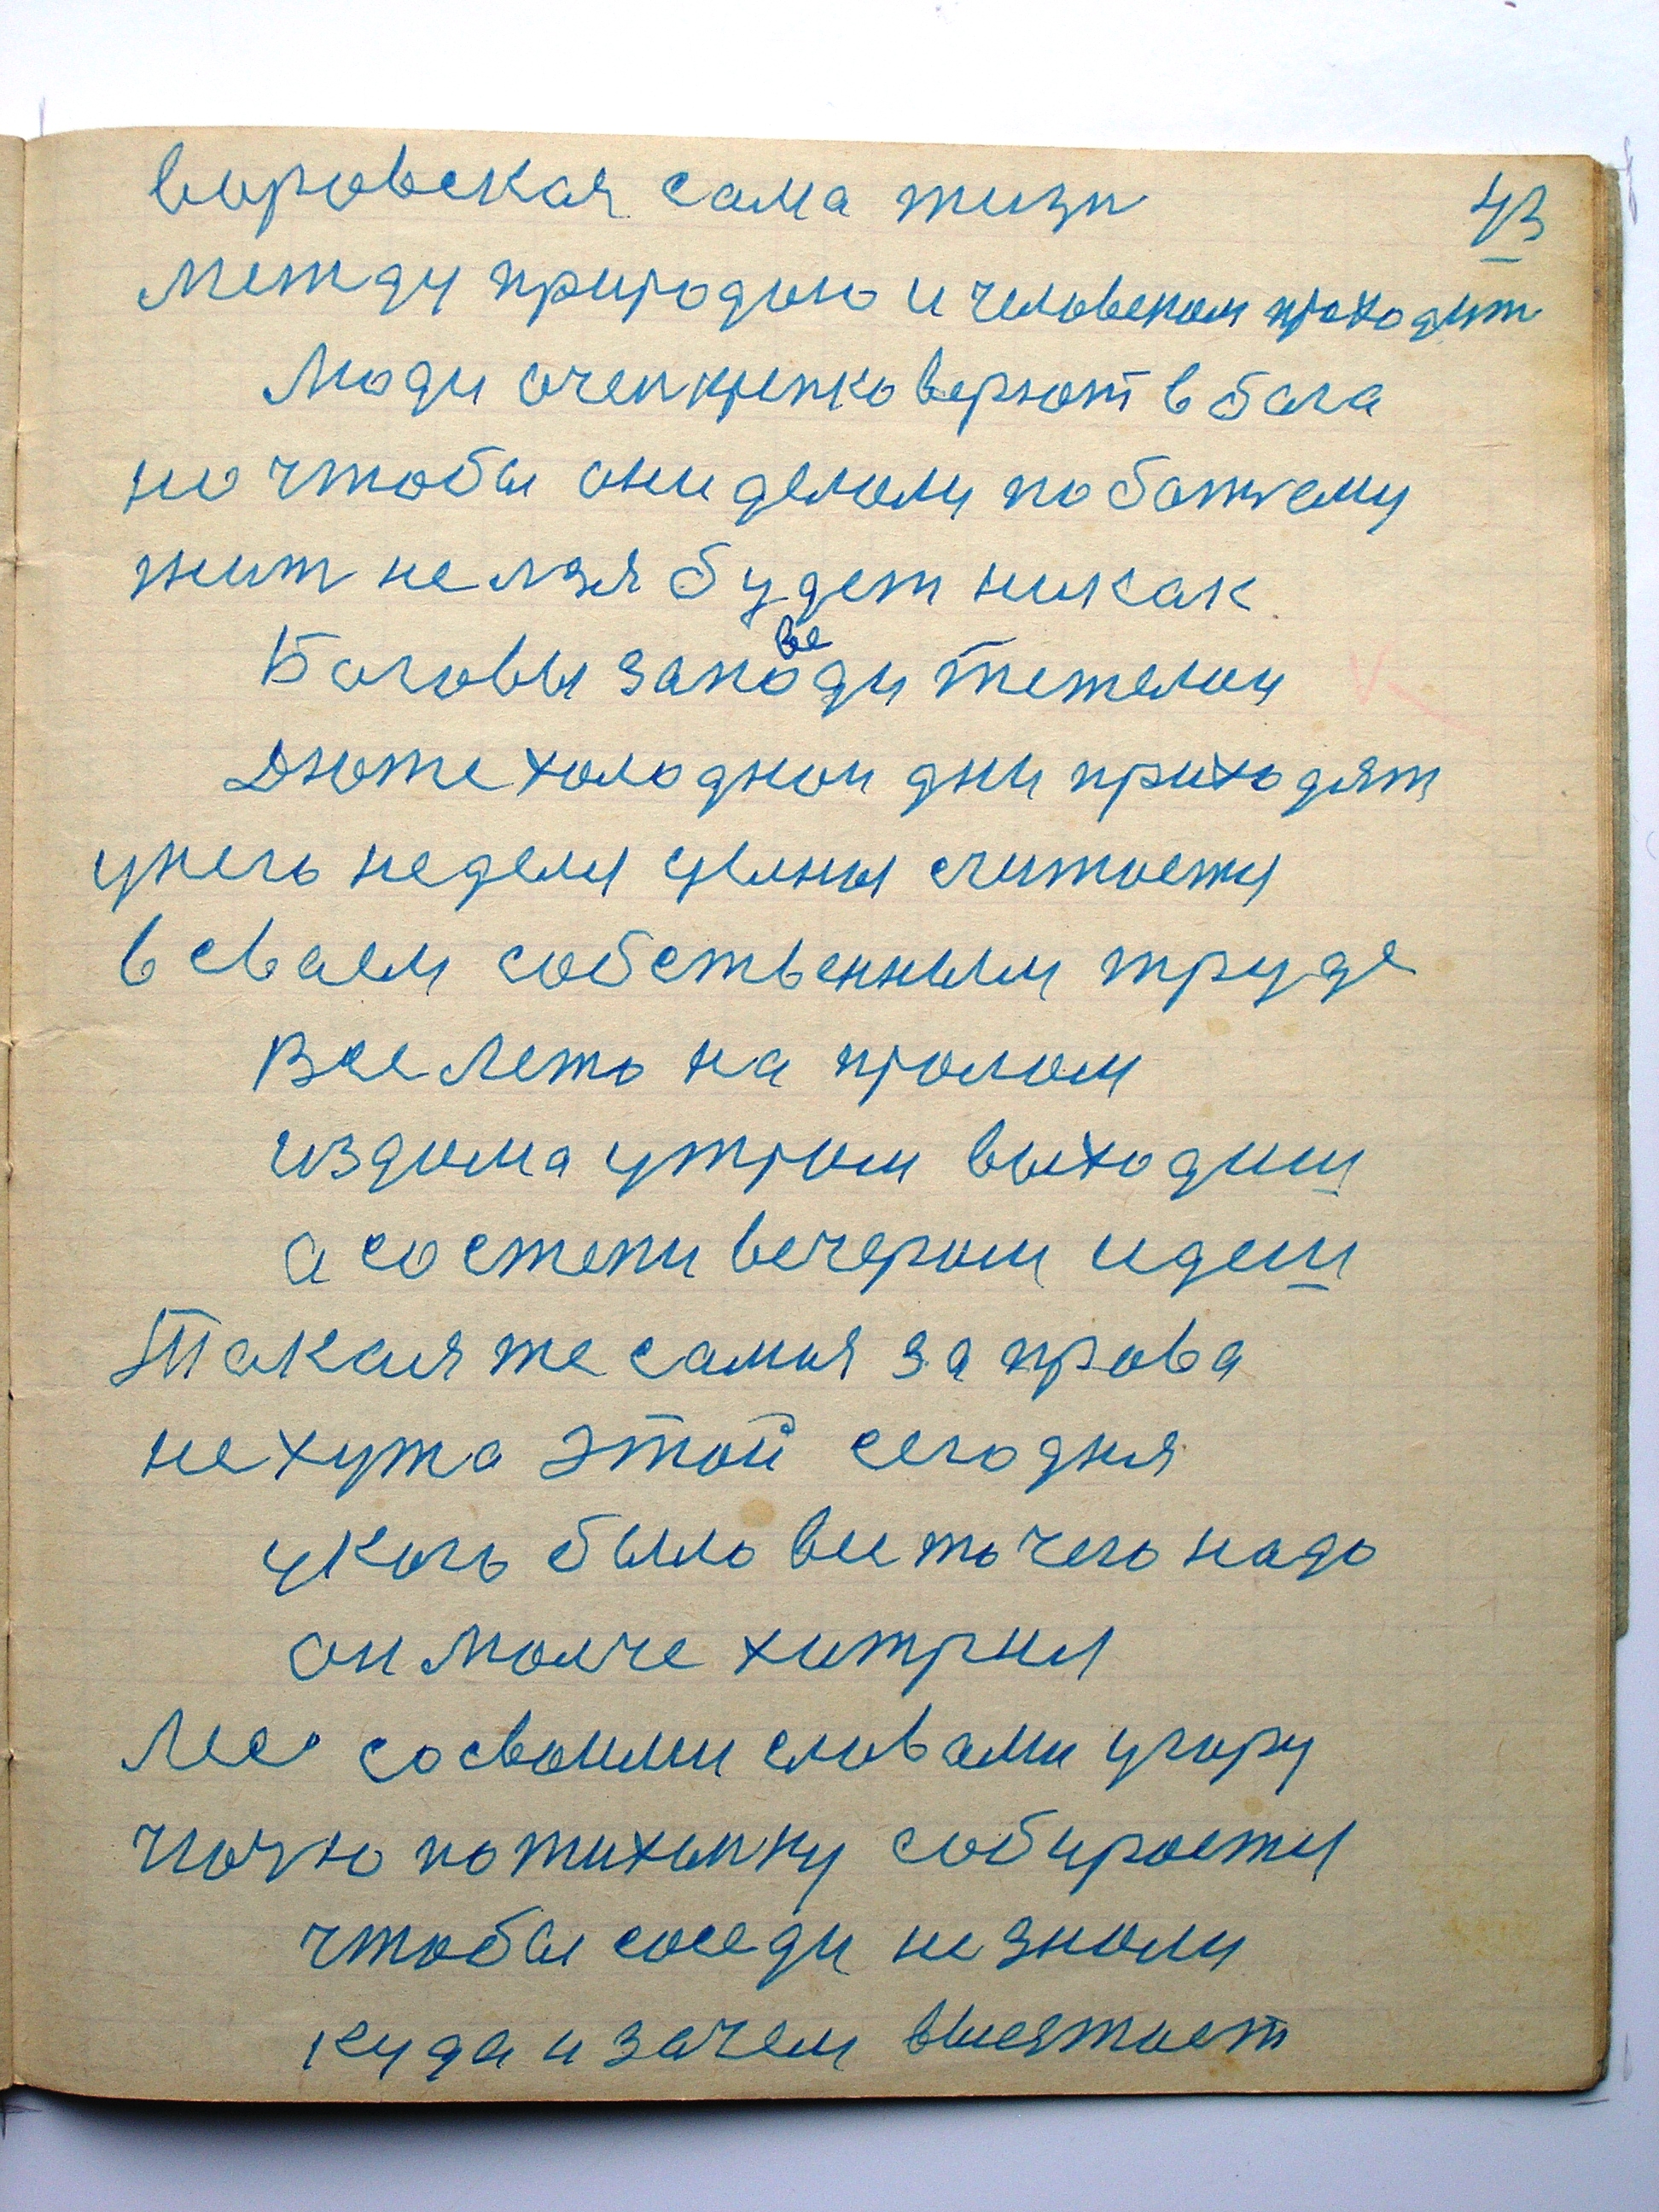 43
воровская сама жизн
между природою и человеком проходит
Люди очен крепко верют в бога
но чтобы они делали по божему
жит нелзя будет никак
Боговы заповеди тежелаи
Дюже холоднаи дни приходят
у него неделя целыя считается
в сваем собственным труде
Все лето на пролом
из дома утром выходиш
а со степи вечером идеш
Такая же самая заправа
не хужа этой сегодня
у кого было все то чего надо
он молче хитрил
Лес со своими словами угору
ночю по тихинку собирается
чтобы соседи не знали
куда и зачем выезжает